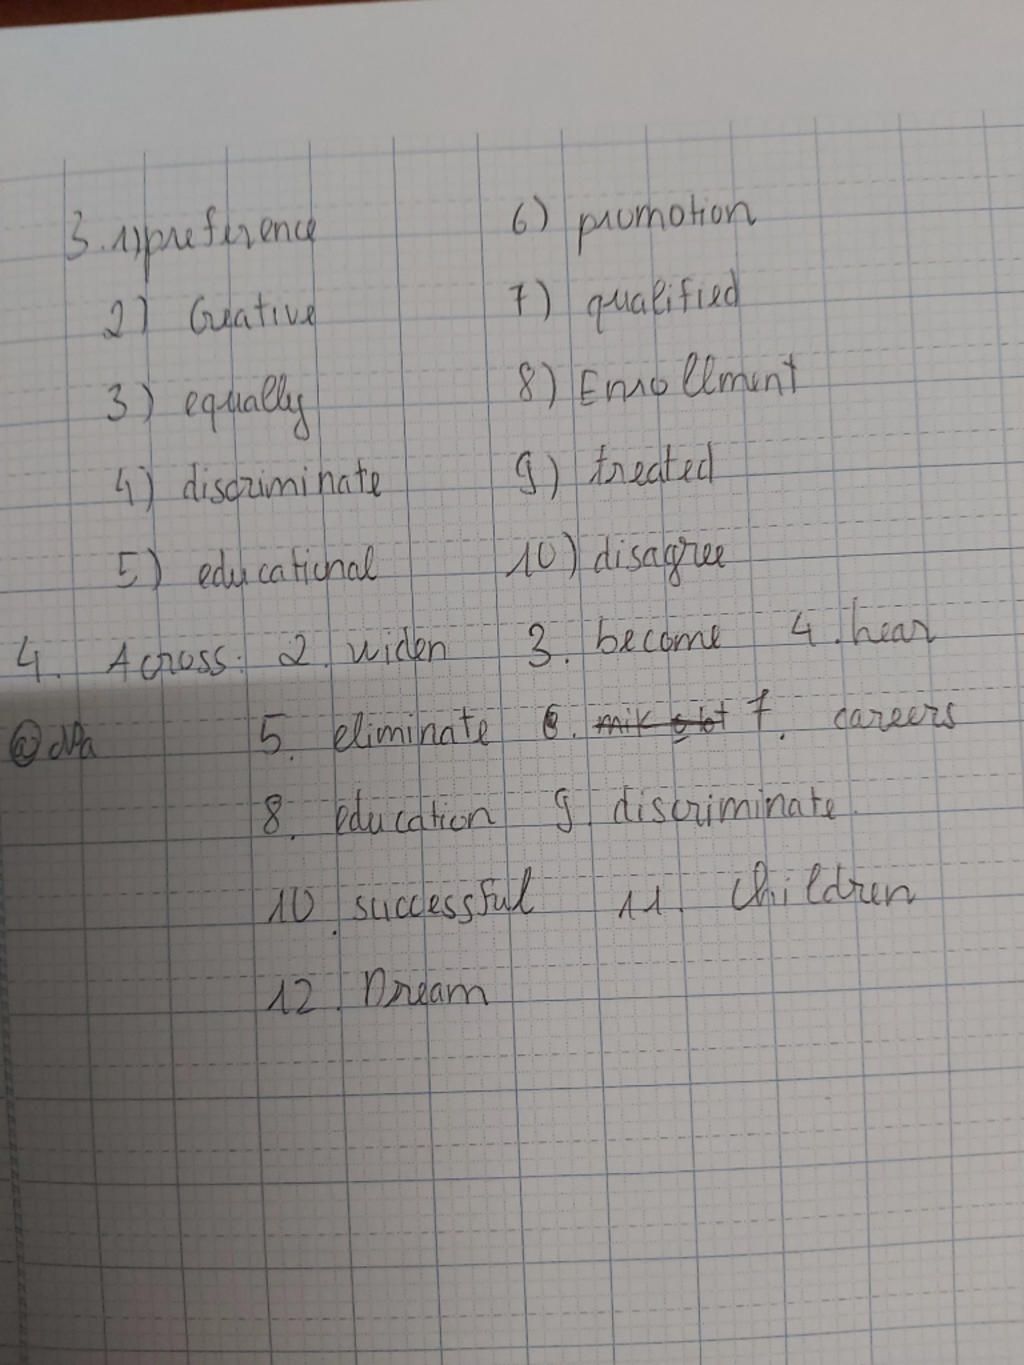 3. 1) preference 6) promotion
2) Creative 7) qualified
3) equally 8) Enrollment
4) discriminate 9) treated
5) educational 10) disagree
4. Across: 2. widen 3. become 4. hear
5. eliminate 6. 7. careers
8. education 9. discriminate.
10. successful 11. children
12. Dream